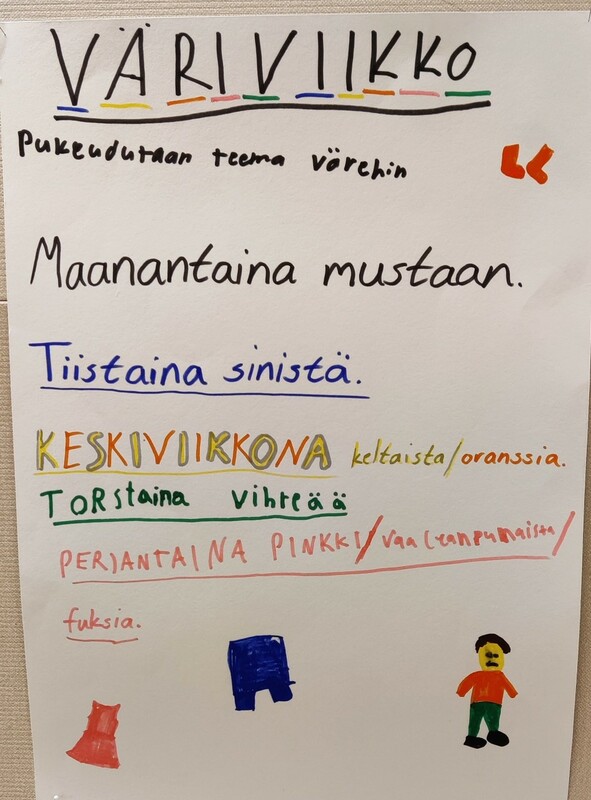 VÄRIVIIKKO
Pukeudutaan teema värehin
Maanantaina mustaan.
Tiistaina sinistä.
KESKIVIIKKONA keltaista/oranssia.
TORstaina vihreää
PERJANTAINA PINKKI/vaaleanpunaista/
fuksia.